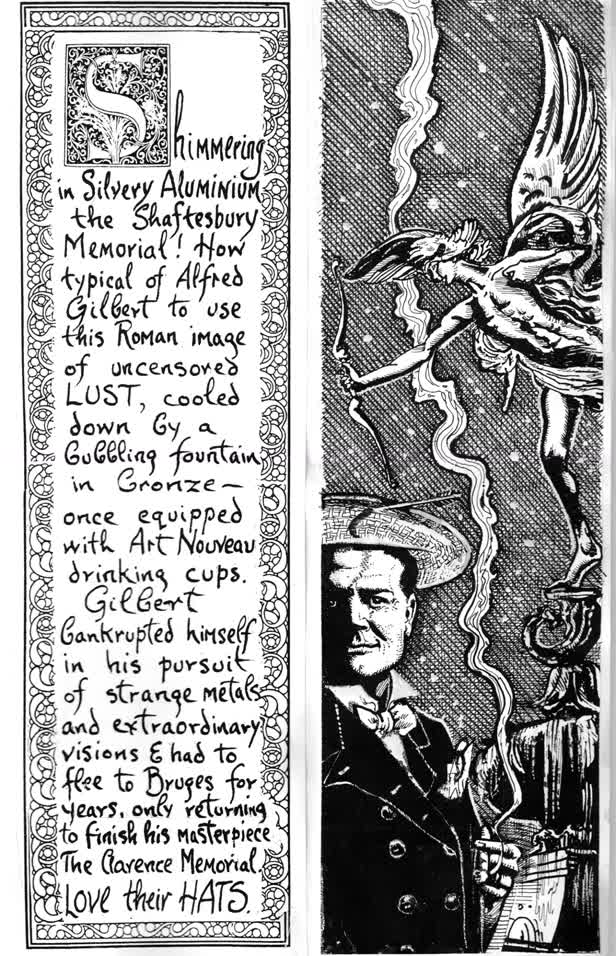 Shimmering
in Silvery Aluminium
the Shaftesbury
Memorial! How
typical of Alfred
Gilbert to use
this Roman image
of uncensored
LUST, cooled
down by a
bubbling fountain
in bronze –
once equipped
with Art Nouveau
drinking cups.
Gilbert
bankrupted himself
in his pursuit
of strange metals
and extraordinary
visions & had to
flee to Bruges for
years, only returning
to finish his masterpiece
The Clarence Memorial.
Love their HATS.